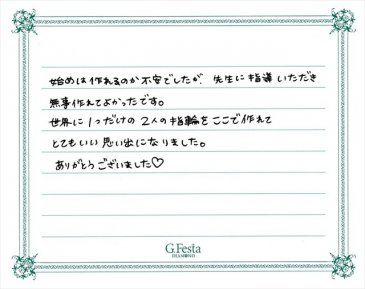 始めは作れるのか不安でしたが、先生に指導いただき
無事作れてよかったです。
世界に1つだけの2人の指輪をここで作れて
とてもいい思い出になりました。
ありがとうございました♡
G.Festa
DIAMOND